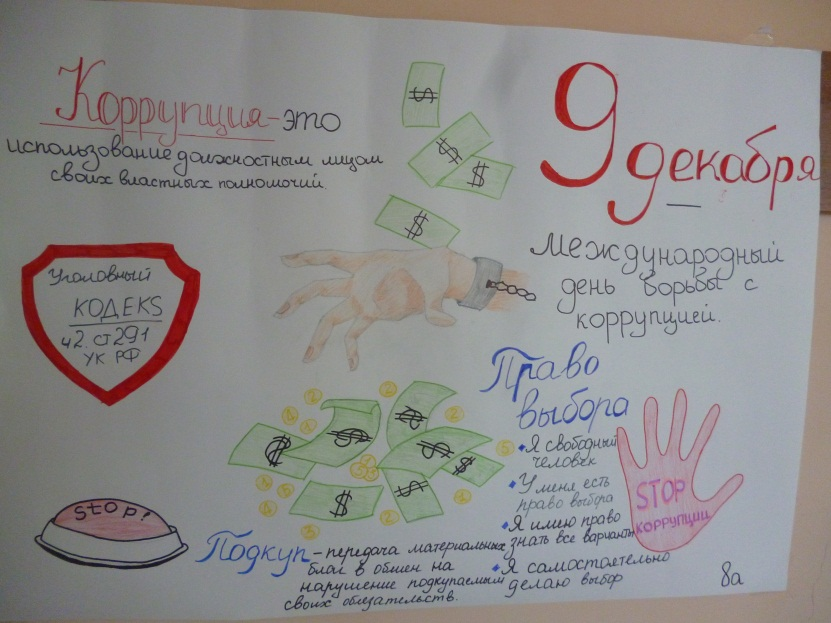 Коррупция - это
использование должностным лицом
своих властных полномочий.
9 декабря
–
международный
день борьбы с
коррупцией.
Уголовный
КОДЕKS
ч2. ст291
УК РФ
$
$
$
$
Право
выбора
• Я свободный
человек
• У меня есть
право выбора
• Я имею право
знать все варианты
• Я самостоятельно
делаю выбор
STOP
КОРРУПЦИИ
$
$
$
$
$
$
$
STOP!
Подкуп – передача материальных
благ в обмен на
нарушение подкупаемым
своих обязательств.
8а